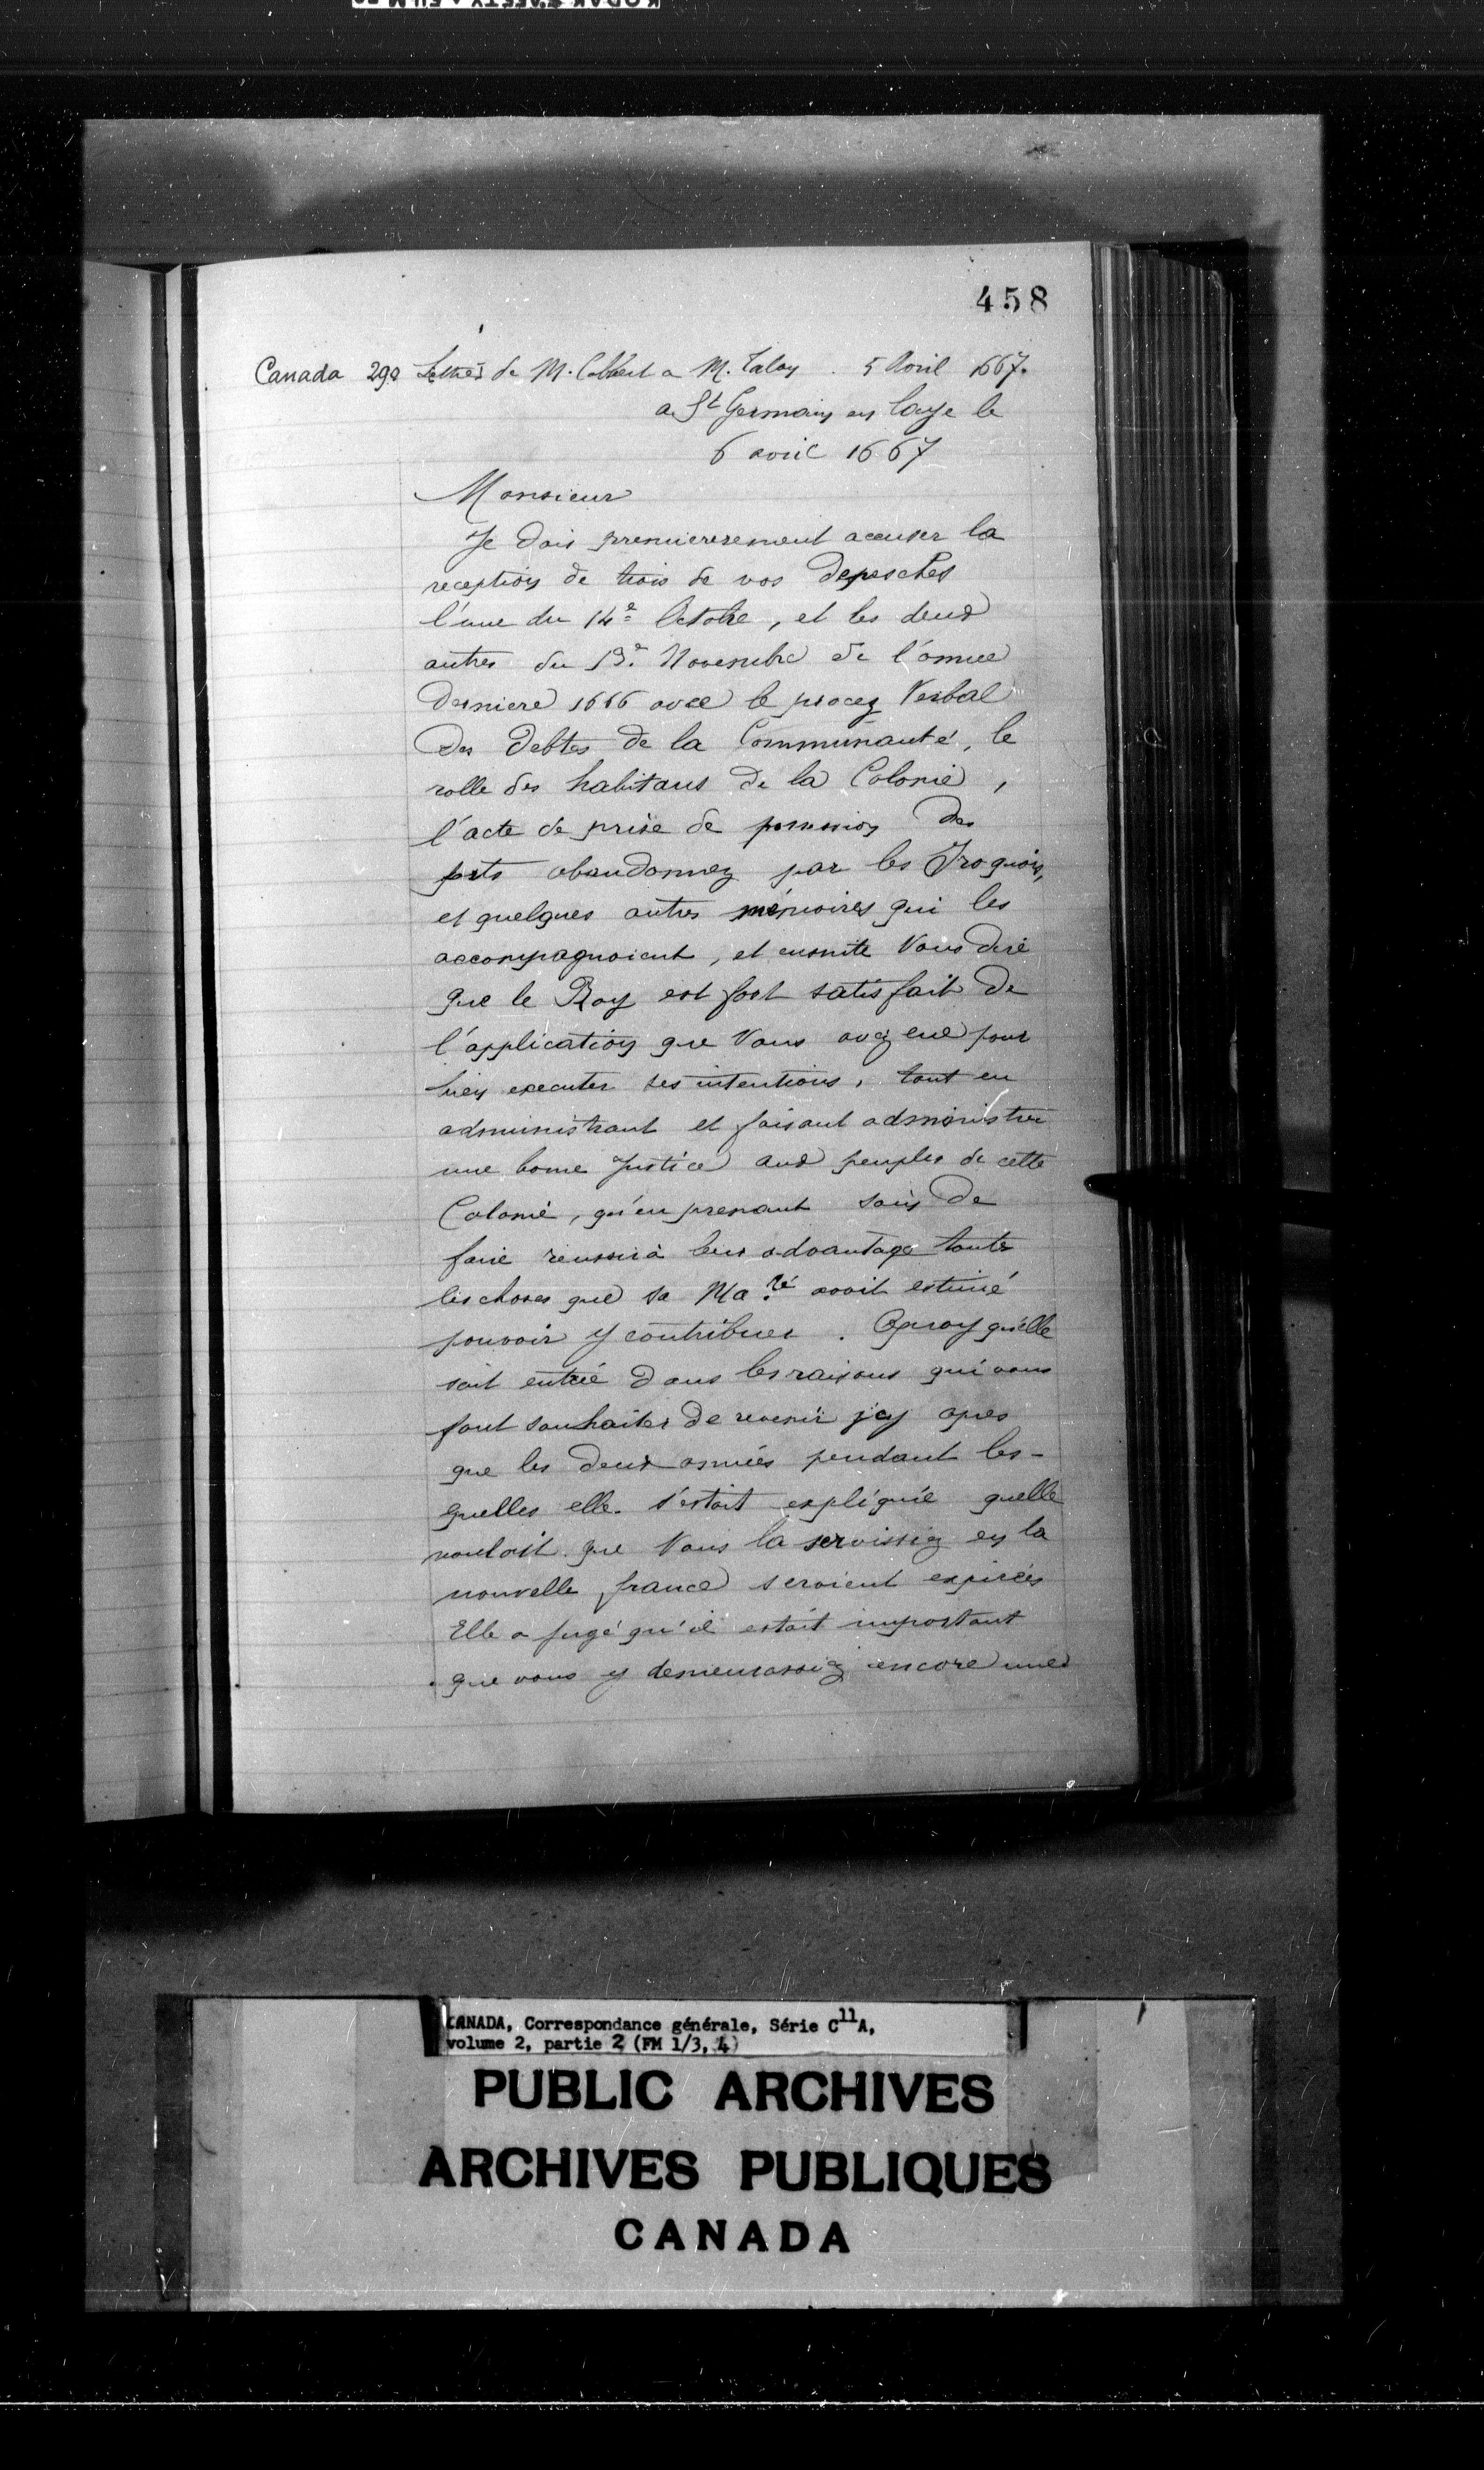 458
Canada 290 Lettres de M. Colbert a M. Talon . 5 Avril 1667.
a St Germain en laye le
6 avril 1667
Monsieur
Je dois premierement accuser la
reception de trois de vos depesches
l'une du 14e Octobre, et les deux
autres du 13e Novembre de l'année
derniere 1666 avec le procez Verbal
des debtes de la Communauté, le
rolle des habitans de la Colonie,
l'acte de prise de possession des
forts abandonnez par les Iroquois,
et quelques autres mémoires qui les
accompagnoient, et ensuite Vous dire
que le Roy est fort satisfait de
l'application que Vous avez eue pour
bien executer ses intentions, tant en
administrant et faisant administrer
une bonne Justice aux peuples de cette
Colonie, qu'en prenant soin de
faire reussir à leur advantage toutes
les choses que sa Ma.té avoit estimé
pouvoir y contribuer. Quoy qu'elle
soit entrée dans les raisons qui vous
font souhaiter de revenir icy apres
que les deux années pendant les-
quelles elle s'estoit expliquée quelle
vouloit que Vous la servissiez en la
nouvelle france seroient expirées
Elle a jugé qu'il estoit important
que vous y demeurassiez encore une
CANADA, Correspondance générale, Série C11A,
volume 2, partie 2 (FM 1/3, 4)
PUBLIC ARCHIVES
ARCHIVES PUBLIQUES
CANADA